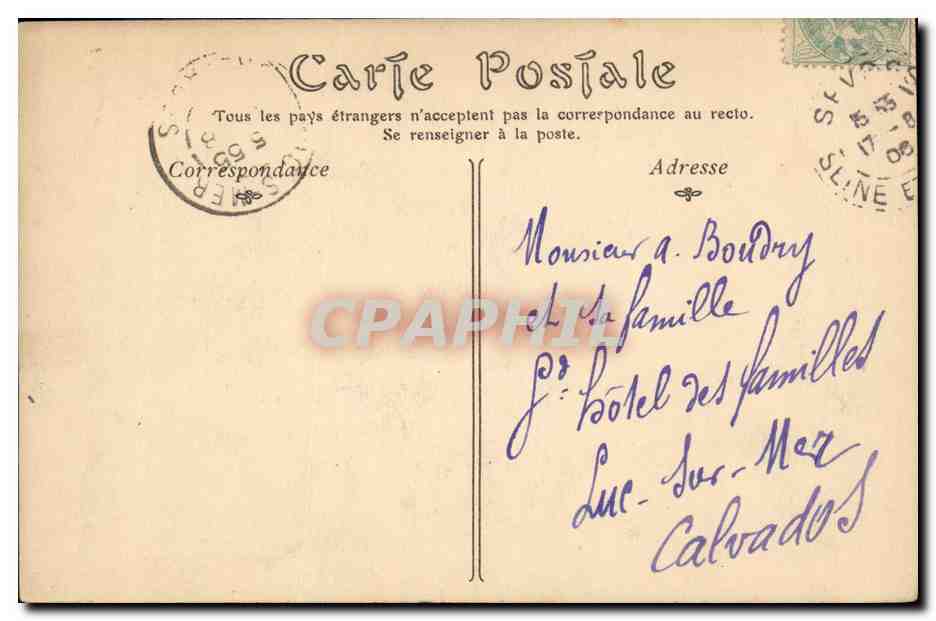 Carte Postale
Tous les pays étrangers n'acceptent pas la correspondance au recto.
Se renseigner à la poste.
Correspondance
Adresse
Monsieur A. Boudry
et sa famille
Gd hôtel des familles
Luc-sur-Mer
Calvados
CPAPHIL
SEVRES
15 45
17 - 8
06
SEINE E
S-MER
5 55
8